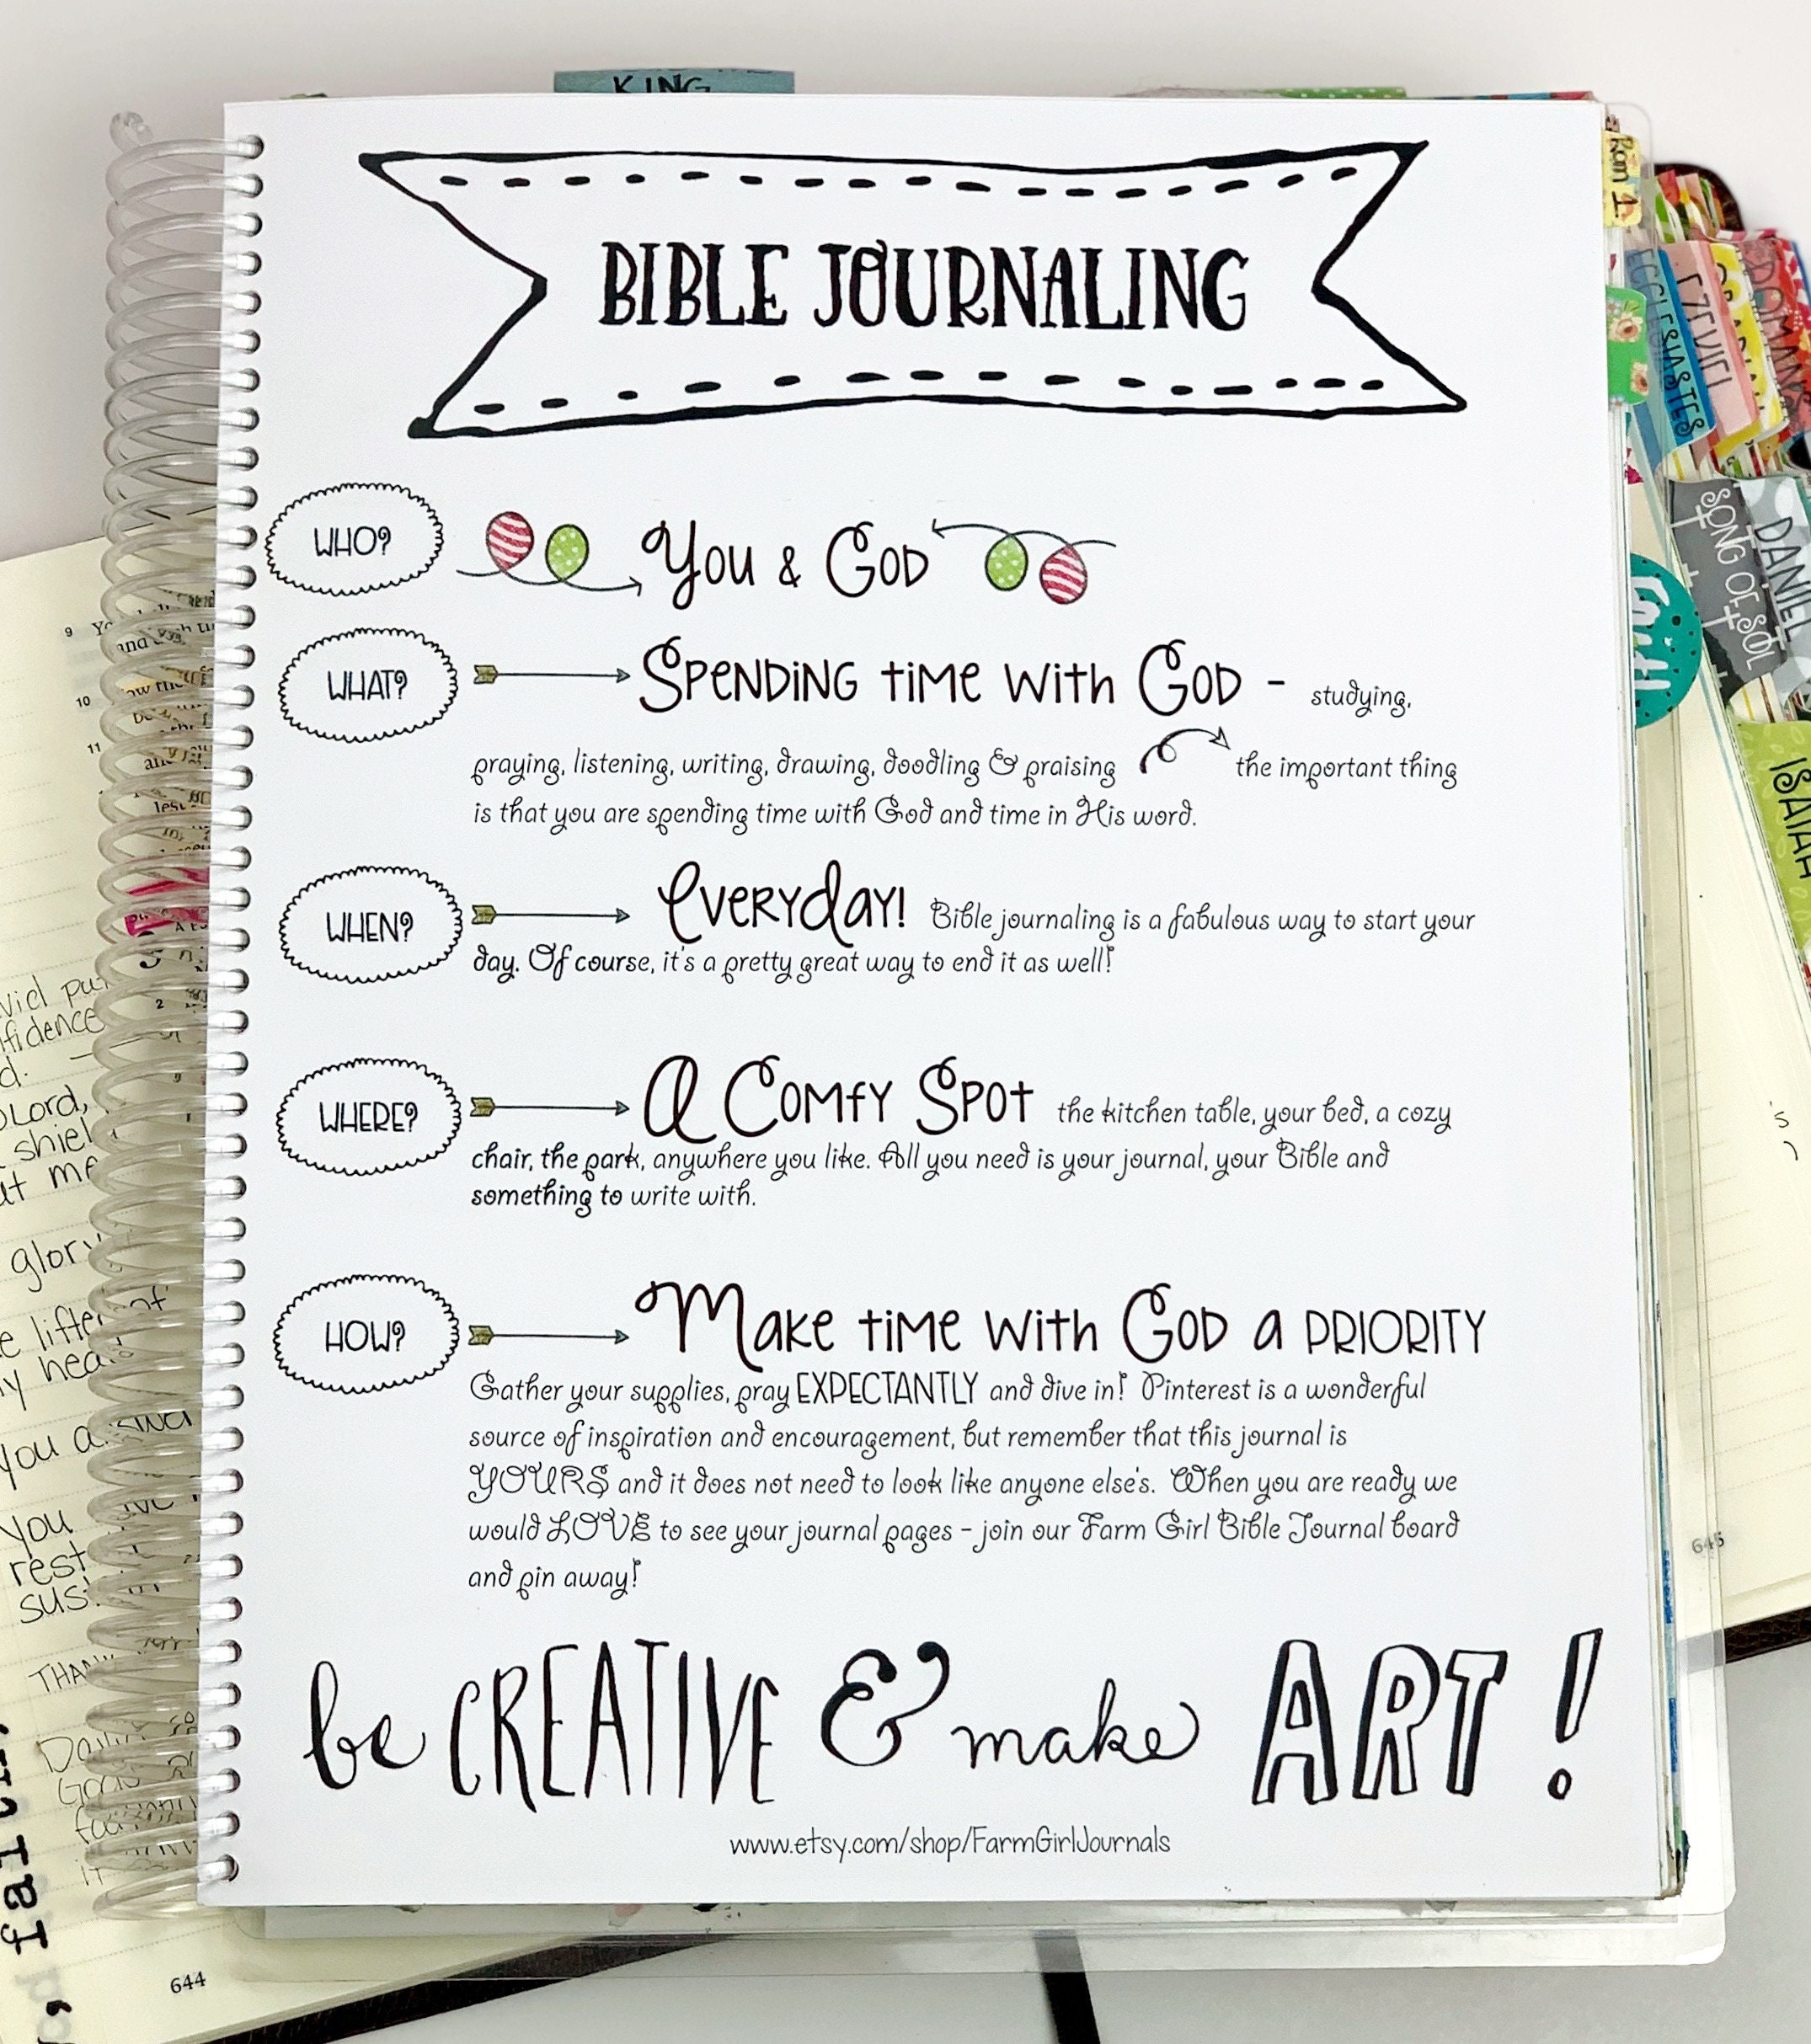 KING
BIBLE JOURNALING
WHO? You & God
WHAT? Spending time with God - studying,
praying, listening, writing, drawing, doodling & praising the important thing
is that you are spending time with God and time in His word.
WHEN? Everyday! Bible journaling is a fabulous way to start your
day. Of course, it's a pretty great way to end it as well!
WHERE? A Comfy Spot the kitchen table, your bed, a cozy
chair, the park, anywhere you like. All you need is your journal, your Bible and
something to write with.
HOW? Make time with God a PRIORITY
Gather your supplies, pray EXPECTANTLY and dive in! Pinterest is a wonderful
source of inspiration and encouragement, but remember that this journal is
YOURS and it does not need to look like anyone else's. When you are ready we
would LOVE to see your journal pages - join our Farm Girl Bible Journal board
and pin away!
be CREATIVE & make ART!
www.etsy.com/shop/FarmGirlJournals
Rom 1
ECCLESIASTES
SONG OF SOL
DANIEL
ISAIAH
645
9
10
11
and
2
Lord,
glory
you
rest
644